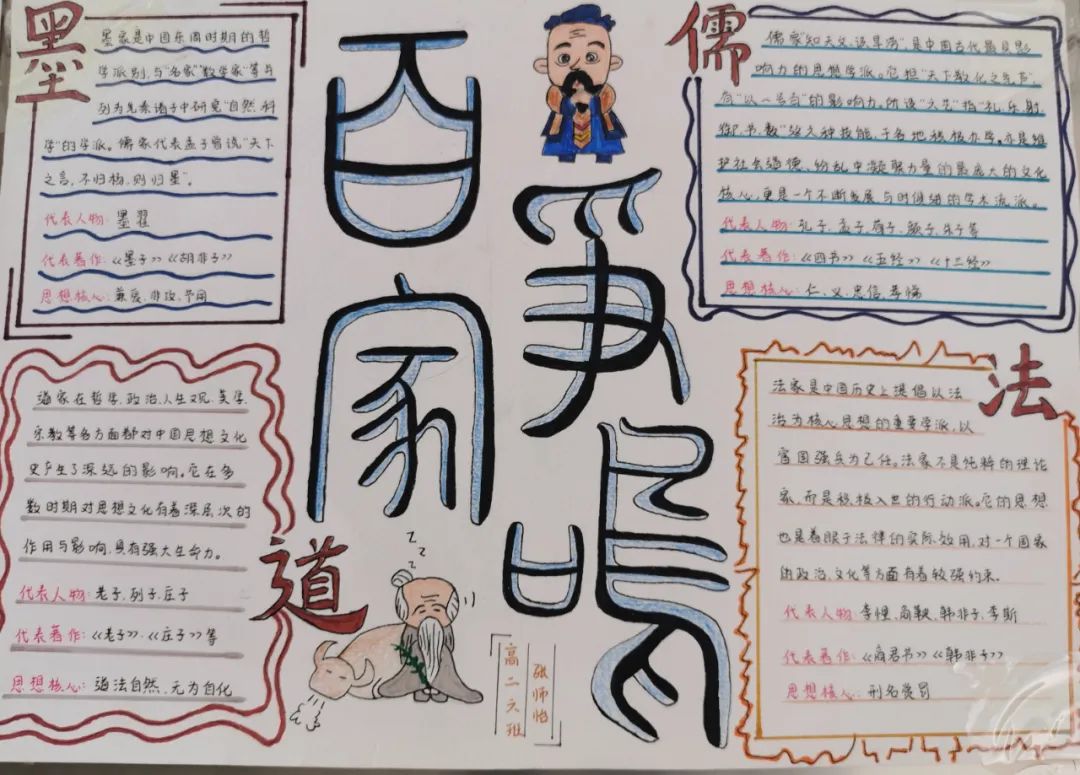 百家争鸣
墨
墨家是中国东周时期的哲
学派别,与"名家""数学家"等与
列为先秦诸子中研究"自然科
学"的学派。儒家代表孟子曾说"天下
之言,不归杨,则归墨"。
代表人物:墨翟
代表著作:《墨子》《胡非子》
思想核心:兼爱、非攻、节用
儒
儒家"知天文、识旱涝",是中国古代最具影
响力的思想学派。它担"天下教化之
有"以一号百"的影响力。所谓"六艺"指"礼、乐、射、
御、书、数"这六种技能,于各地积极办学。亦是维
护社会道德、纷乱中凝聚力量的最庞大的文化
核心,更是一个不断发展、与时俱进的学术流派。
代表人物:孔子、孟子、荀子、颜子、朱子等
代表著作:《四书》《五经》《十三经》
思想核心:仁、义、忠信、孝悌
道
道家在哲学、政治、人生观、美学、
宗教等多方面都对中国思想文化
史产生了深远的影响。它在多
数时期对思想文化有着深层次的
作用与影响,具有强大生命力。
代表人物:老子、列子、庄子
代表著作:《老子》、《庄子》等
思想核心:道法自然、无为自化
法
法家是中国历史上提倡以法
治为核心思想的重要学派,以
富国强兵为己任。法家不是纯粹的理论
家,而是积极入世的行动派。它的思想
也是着眼于法律的实际效用,对一个国家
的政治、文化等方面有着较强约束。
代表人物:李悝、商鞅、韩非子、李斯
代表著作:《商君书》《韩非子》
思想核心:刑名赏罚
z z z
高二六班
张师怡